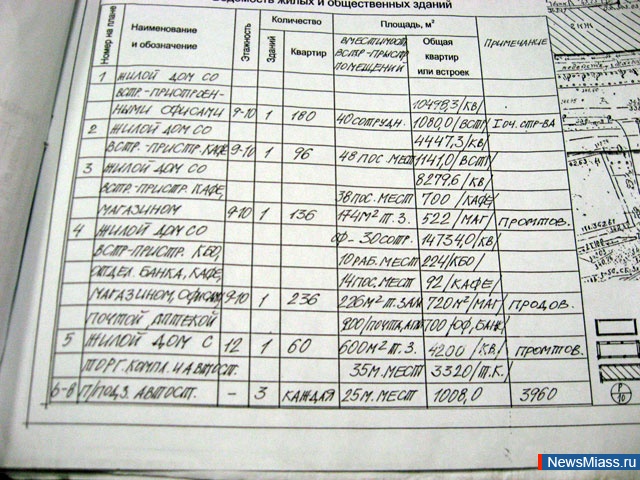 Ведомость жилых и общественных зданий
Номер на плане
Наименование и обозначение
Этажность
Количество
Зданий
Квартир
Площадь, м²
ВМЕСТИМОСТЬ ВСТР-ПРИСТР ПОМЕЩЕНИЙ
Общая квартир или встроек
ПРИМЕЧАНИЕ
1 ЖИЛОЙ ДОМ СО
ВСТР-ПРИСТРОЕН- 10498,3/КВ/
НЫМИ ОФИСАМИ 9-10 1 180 40 СОТРУДН. 1080,0/ВСТР/ I ОЧ. СТР-ВА
2 ЖИЛОЙ ДОМ СО 4447,3/КВ/
ВСТР-ПРИСТР. КАФЕ 9-10 1 96 48 ПОС. МЕСТ 1141,0/ВСТР/
3 ЖИЛОЙ ДОМ СО 8279,6/КВ/
ВСТР-ПРИСТР. КАФЕ, 38 ПОС. МЕСТ 700/КАФЕ/
МАГАЗИНОМ 9-10 1 136 174М² Т.З. 522/МАГ/ ПРОМТОВ.
4 ЖИЛОЙ ДОМ СО ОФ-30СОТР. 14734,0/КВ/
ВСТР-ПРИСТР. КБО, 10 РАБ. МЕСТ 224/КБО/
ОТДЕЛ. БАНКА, КАФЕ, 14 ПОС. МЕСТ 92/КАФЕ/
МАГАЗИНОМ, ОФИСАМИ 9-10 1 236 226М² Т. ЗАЛА 720М²/МАГ/ ПРОДОВ.
ПОЧТОЙ, АПТЕКОЙ 900/ПОЧТА, 700/ОФ, БАНК/
5 ЖИЛОЙ ДОМ С 12 1 60 600М² Т.З. 4200/КВ./ ПРОМТОВ.
ТОРГ. КОМПЛ. И АВТОСТ. 35М. МЕСТ 3320/Т.К./
6-8 П/ПОДЗ. АВТОСТ. – 3 КАЖДАЯ 25М. МЕСТ 1008,0 3960
Р
10
NewsMiass.ru